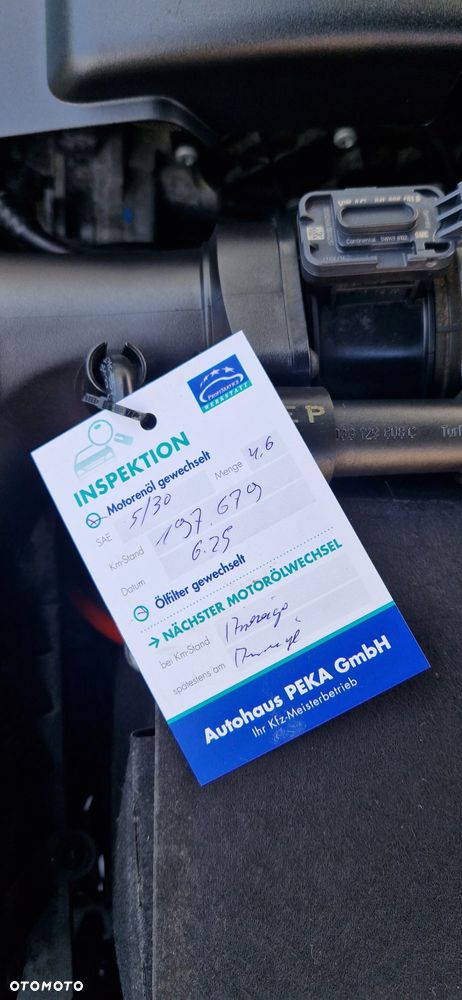 Continental
EP
PROFISERVICE
WERKSTATT
INSPEKTION
Motorenöl gewechselt
SAE 5/30 Menge 4,6
Km-Stand 197.679
Datum 6.25
Ölfilter gewechselt
→ NÄCHSTER MOTORÖLWECHSEL
bei Km-Stand
spätestens am
Autohaus PEKA GmbH
Ihr Kfz-Meisterbetrieb
OTOMOTO